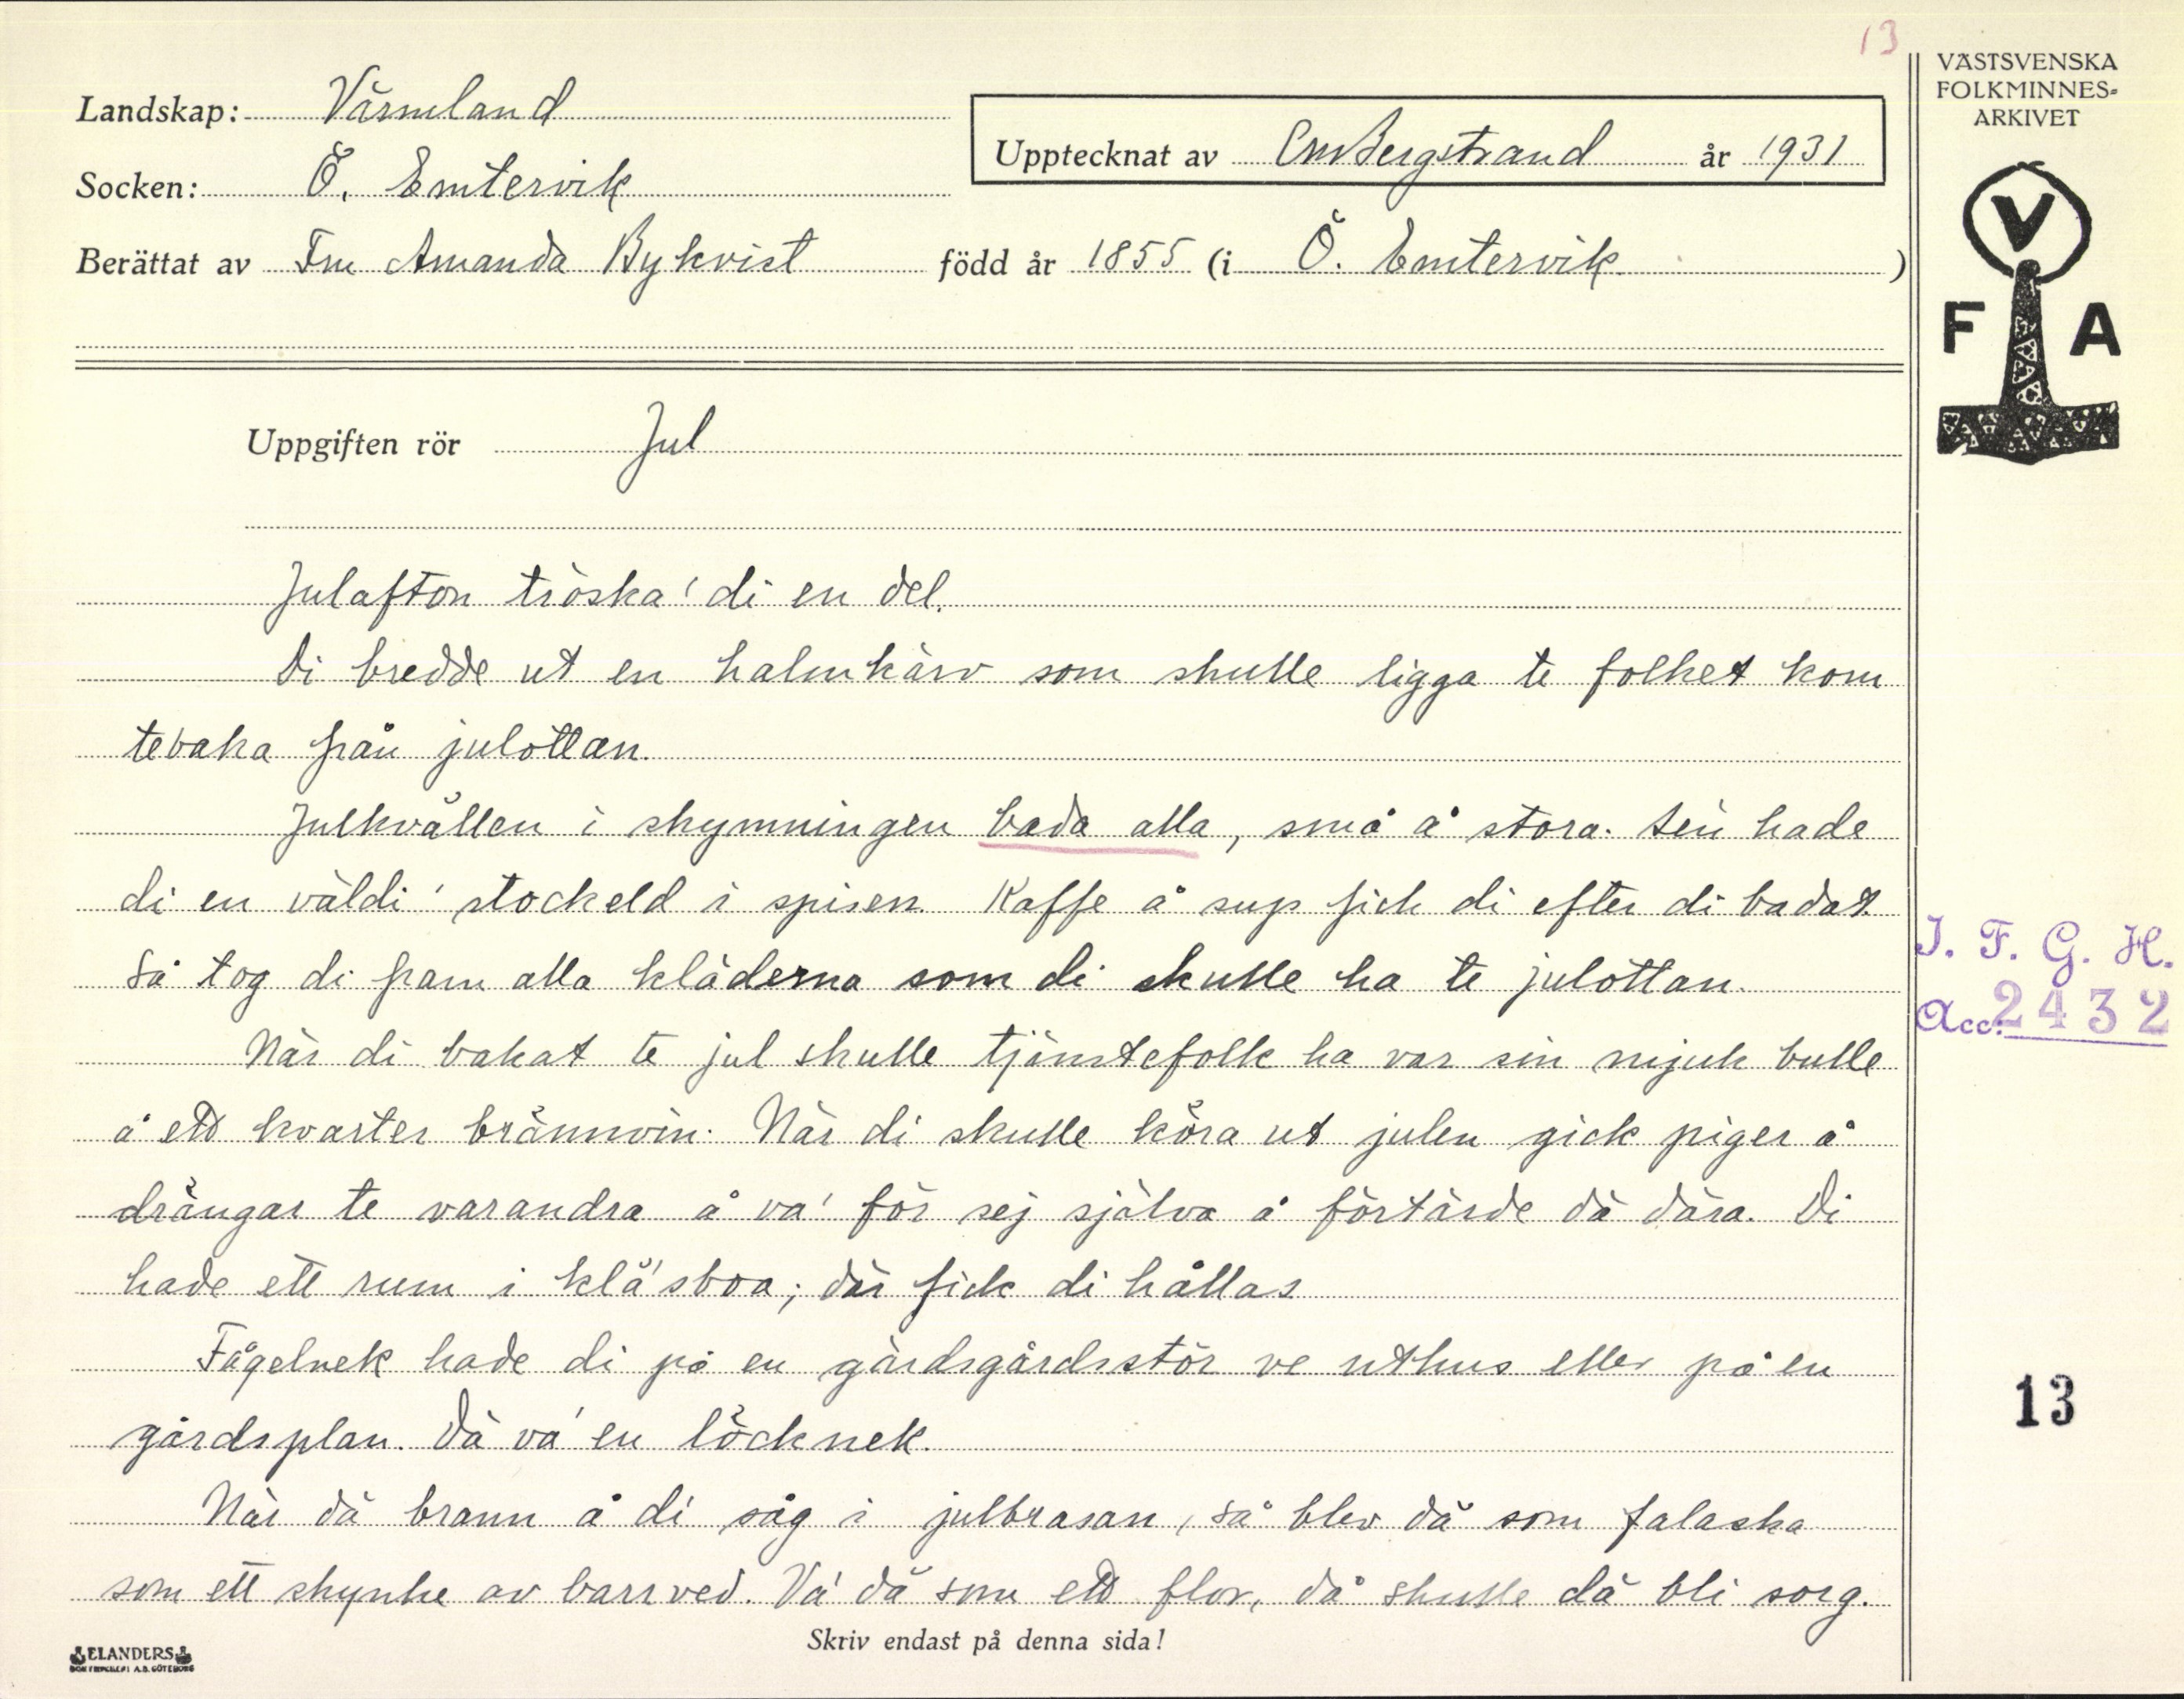 13
VÄSTSVENSKA
FOLKMINNES-
ARKIVET
Landskap: Värmland
Upptecknat av CMBergstrand år 1931
Socken: Ö. Emtervik
Berättat av Fru Amanda Bykvist född år 1855 (i Ö. Emtervik )
V
F A
Uppgiften rör Jul
Julafton tröska' di en del.
Di bredde ut en halmkärv som skulle ligga te folket kom
tebaka från julottan.
Julkvällen i skymningen bada alla, små å stora. Sen hade
di en väldi' stockeld i spisen. Kaffe å sup fick di efter di badat.
Så tog di fram alla kläderna som di skulle ha te julottan.
När di bakat te jul skulle tjänstefolk ha var sin mjuk bulle
å ett kvarter brännvin. När di skulle köra ut julen gick piger å
drängar te varandra å va' för sej själva å förtärde dä dära. Di
hade ett rum i klä'sboa; där fick di hållas
Fågelnek hade di på en gärdsgårdsstör ve uthus eller på en
gårdsplan. Dä va' en löcknek.
När dä brann å di såg i julbrasan, så blev dä som falaska
som ett skynke av barrved. Va' dä som ett flor, då skulle dä bli sorg.
I. F. G. H.
Acc. 2432
13
Skriv endast på denna sida!
ELANDERS
BOKTRYCKERI A.B. GÖTEBORG